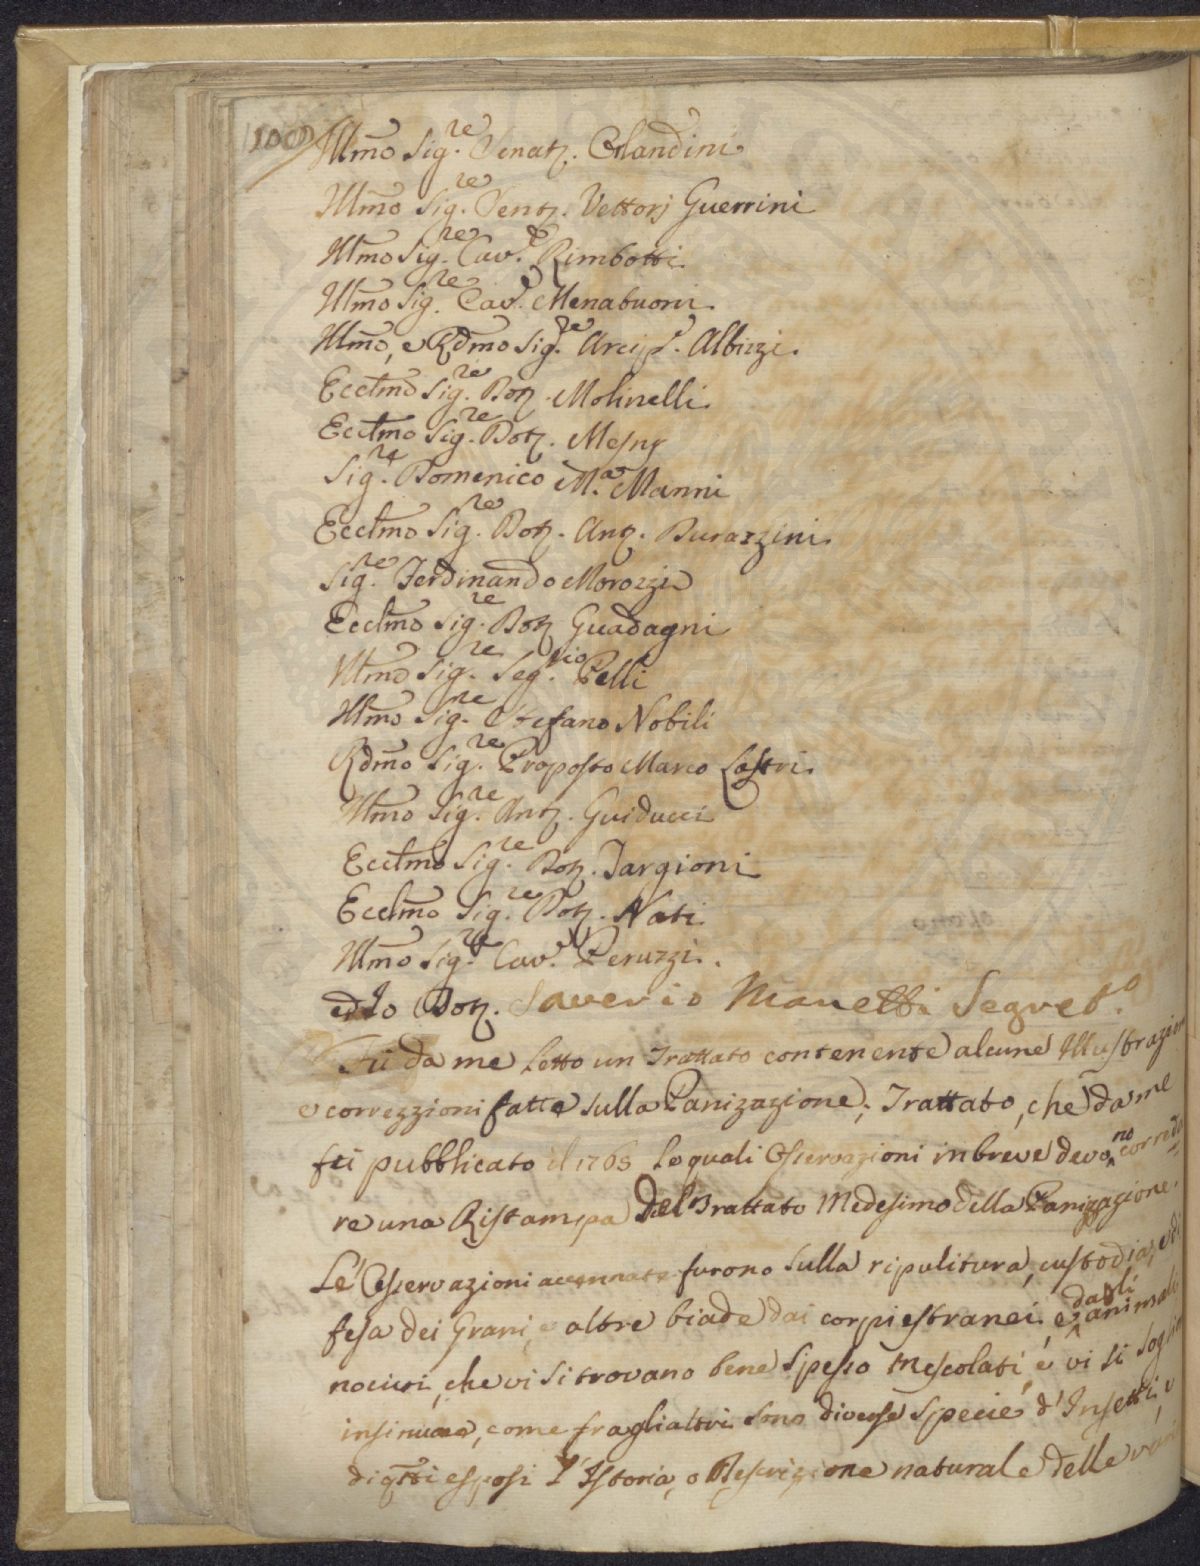 100
Illmo Sig.re Senat.r Orlandini
Illmo Sig.re Sent.r Vettorj Guerrini
Illmo Sig.re Cav.e Rimbotti
Illmo Sig.re Cav.e Menabuoni.
Illmo, e Rdmo Sig.re Arcip.e Albizzi.
Ecclmo Sig.re Dott.r Molinelli.
Ecclmo Sig.re Dott.r Mesny
Sig.re Domenico M.a Manni
Ecclmo Sig.re Dott.r Ant. Durazzini.
Sig.re Ferdinando Morozzi
Ecclmo Sig.re Dott.r Guadagni
Illmo Sig.re Seg.rio Pelli
Illmo Sig.re Stefano Nobili
Rdmo Sig.re Proposto Marco Lastri.
Illmo Sig.re Ant.o Guiducci
Ecclmo Sig.re Dott.r Targioni
Ecclmo Sig.re Dott.r Nati
Illmo Sig.re Cav.e Peruzzi.
ed Io Dott.r Saverio Manetti Segret.o
Fù da me Letto un Trattato contenente alcune Illustrazion
e correzzioni fatte sulla Panizazione; Trattato, che da me
fù pubblicato il 1765 le quali Osservazioni in breve devono correda
re una Ristampa del Trattato Medesimo della Panizzazione.
Le Osservazioni accennate furono sulla ripulitura, custodia, e di
fesa dei Grani, e altre biade dai corpi estranei, e dagli animali
nocivi, che vi si trovano bene spesso mescolati, e vi si soglio
insinuare, come fragli altri sono diverse specie d'Insetti, e
di q.tti esposi l'Istoria, o Descrizione naturale delle varie